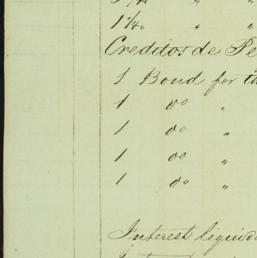 1 1/4 " "
Creditos de Pe
1 Bond for
1 do "
1 do "
1 do "
1 do "
Interest liquid